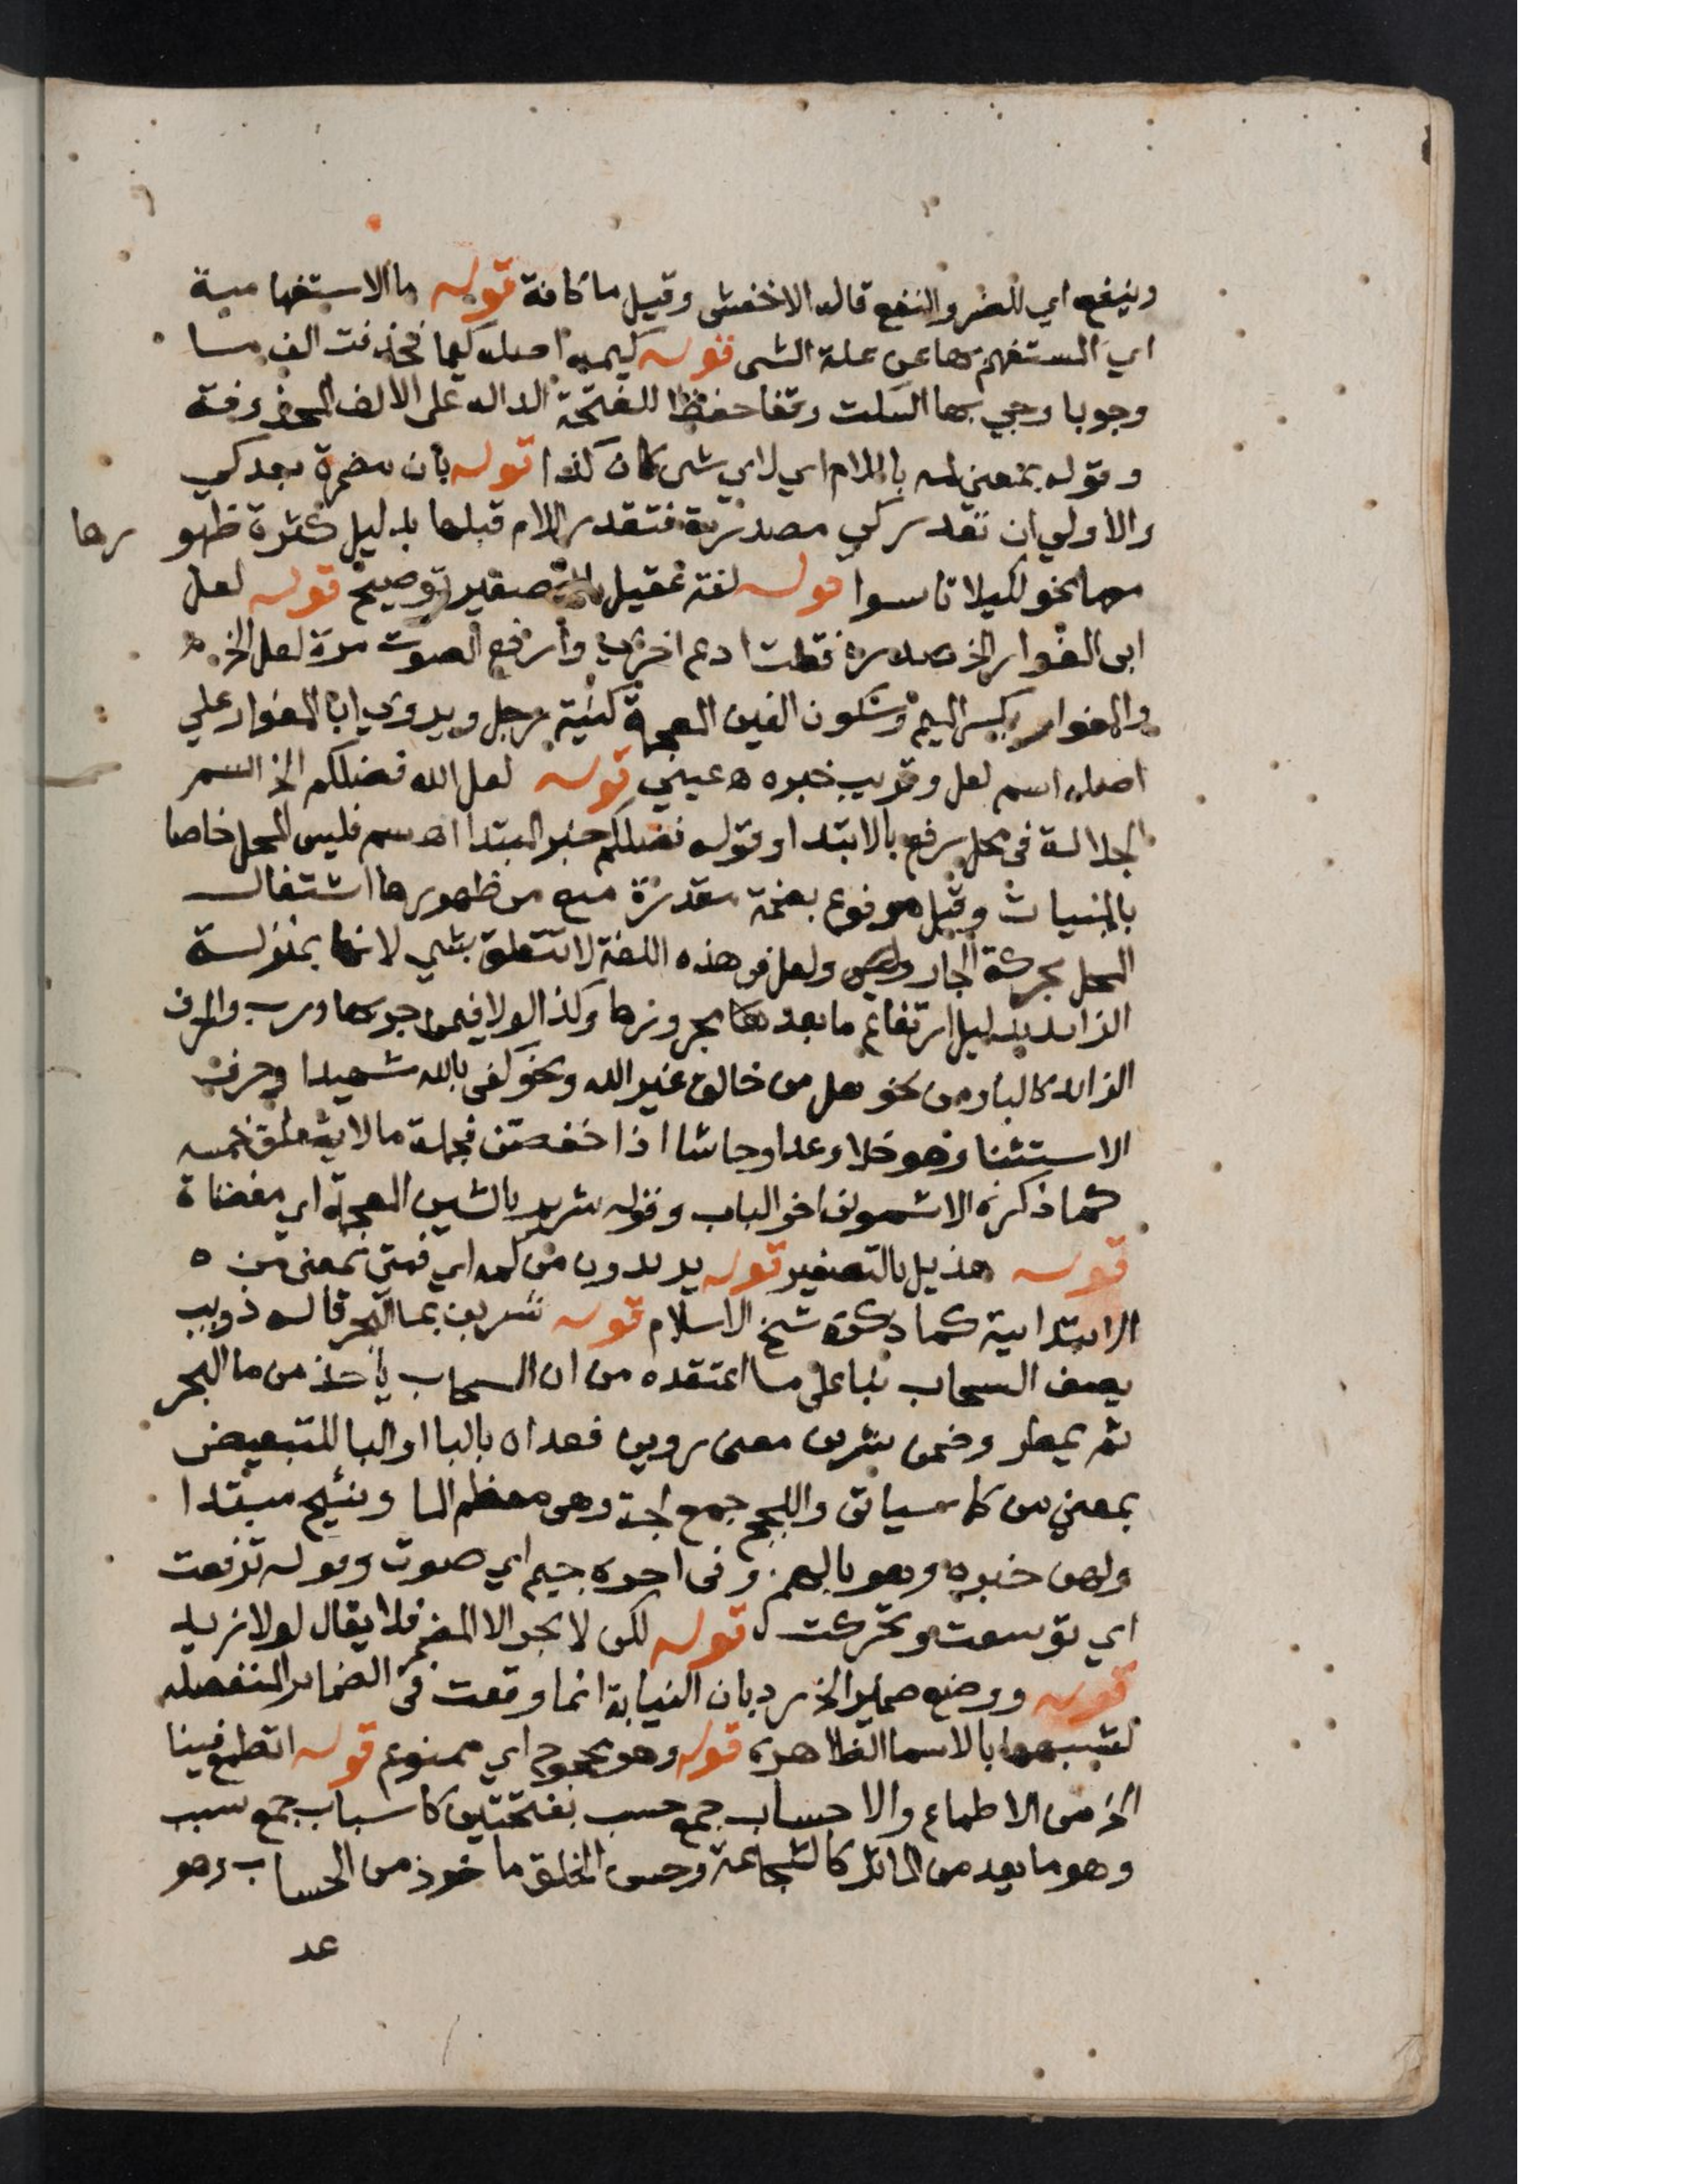 وينفع اي للضر والنفع قاله الاخفش وقيل ما كافة قوله ما الاستفهامية
اي المستفهم بها عن علة الشى قوله كيمه اصله كيما فحذفت الف ما
وجوبا وجي بها السكت وقفا حفظا للفتحة الداله على الالف المحذوفة
وقوله بمعنى لمه باللام اي لاي شى كان كذا قوله بان مضمرة بعد كي
والاولي ان تقدر كي مصدرية فتقدر اللام قبلها بدليل كثرة ظهورها
معها نحو لكيلا تاسوا قوله لغة عقيل بالتصغير توضيح قوله لعل
ابى المغوار الخ صدره فقلت ادع اخرى وارفع الصوت مرة لعل الخ
والمغوار بكسر الميم وسكون الغين المعجمة كنية رجل ويروي ابا المغوار علي
اصله اسم لعل وقريب خبره ه عيني قوله لعل الله فضلكم الخ اسم
الجلالة فى محل رفع بالابتدا وقوله فضلكم خبر المبتدا اه سم فليس المحل خاصا
بالمبنيات وقيل مرفوع بضمة مقدرة منع من ظهورها اشتغال
المحل بحركة الجار ولعل فى هذه اللغة لا تتعلق بشي لانها بمنزلة
الزايد بدليل ارتفاع ما بعد مجرورها وكذا لولا فيمن جر بها ورب والحرف
الزايد كالبا ومن نحو هل من خالق غير الله ونحو كفى بالله شهيدا وحرف
الاستثنا وهو خلا وعدا وحاشا اذا خفضن فجملة ما لا يتعلق خمسه
كما ذكره الاشمونى اخر الباب وقوله شريم بالشين المعجمة اي مفضاة
قوله هذيل بالتصغير قوله يريدون من كمه اي فمتى بمعنى من ه
الابتدايية كما ذكره شيخ الاسلام قوله شربن بما البحر قاله ذويب
يصف السحاب بنا على ما اعتقده من ان السحاب ياخذ من ما البحر
ثم يمطر وضمن شربن معنى روين فعداه بالبا او البا للتبعيض
بمعني من كما سياتى واللجج جمع لجة وهى معظم الما ونئيج مبتدا
ولهن خبره وهو بالهمز وفى اخره جيم اي صوت وقوله ترفعت
اي توسعت وتحركت قوله لكن لا يجر الا المضمر فلا يقال لولا زيد
قوله ووضع ضمير الخ رد بان النيابة انما وقعت فى الضماير المنفصله
لشبهها بالاسما الظاهره قوله وهو محجوج اي ممنوع قوله اتطمع فينا
الخ من الاطماع والاحساب جمع حسب بفتحتين كاسباب جمع سبب
وهو ما يعد من الماثر كالشجاعة وحسن الخلق ماخوذ من الحساب وهو
عد